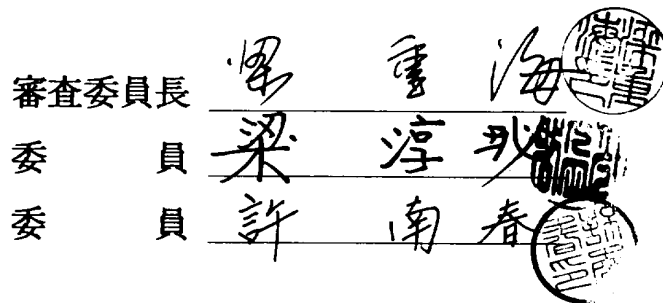 審査委員長 梁 重 海
委 員 梁 淳
委 員 許 南 春